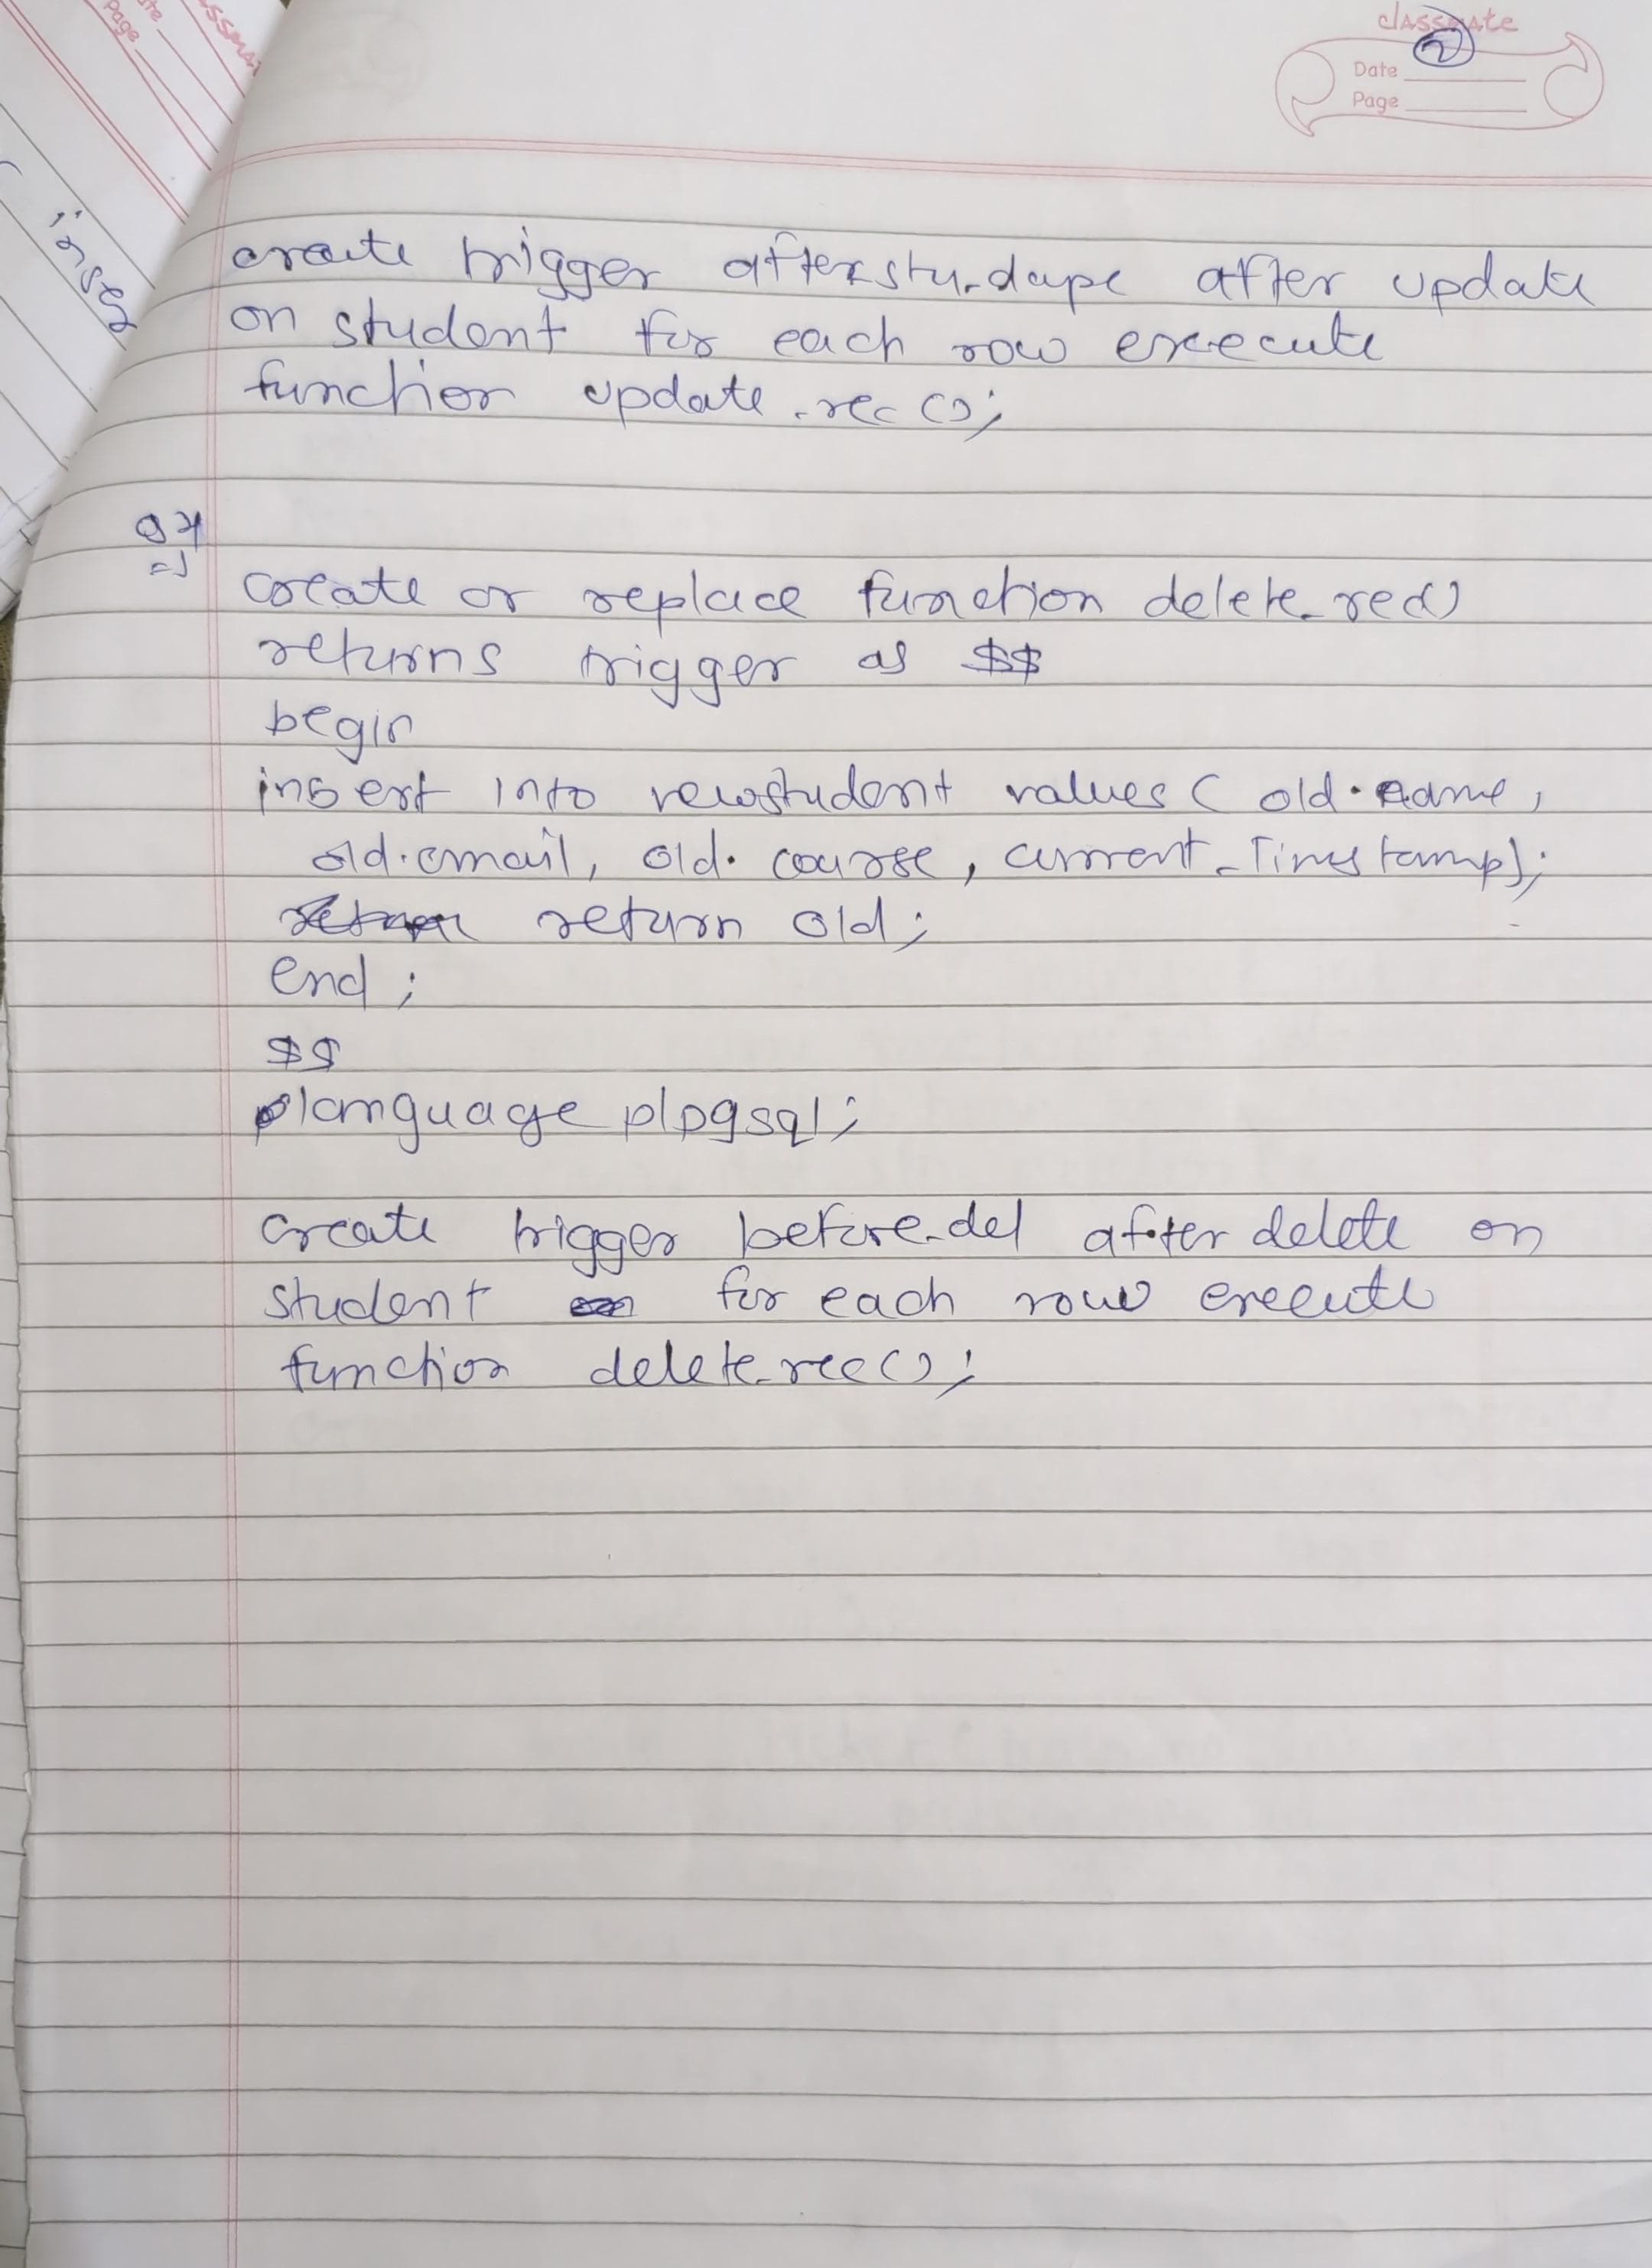 classmate
2
Date
Page
create trigger after_stu_dupe after update
on student for each row execute
function update_rec();
Q4
=>
create or replace function delete_rec()
returns trigger as $$
begin
insert into newstudent values ( old.name,
old.email, old.course, current_Timestamp);
return old;
end ;
$$
language plpgsql;
create trigger before_del after delete on
student for each row execute
function delete_rec();